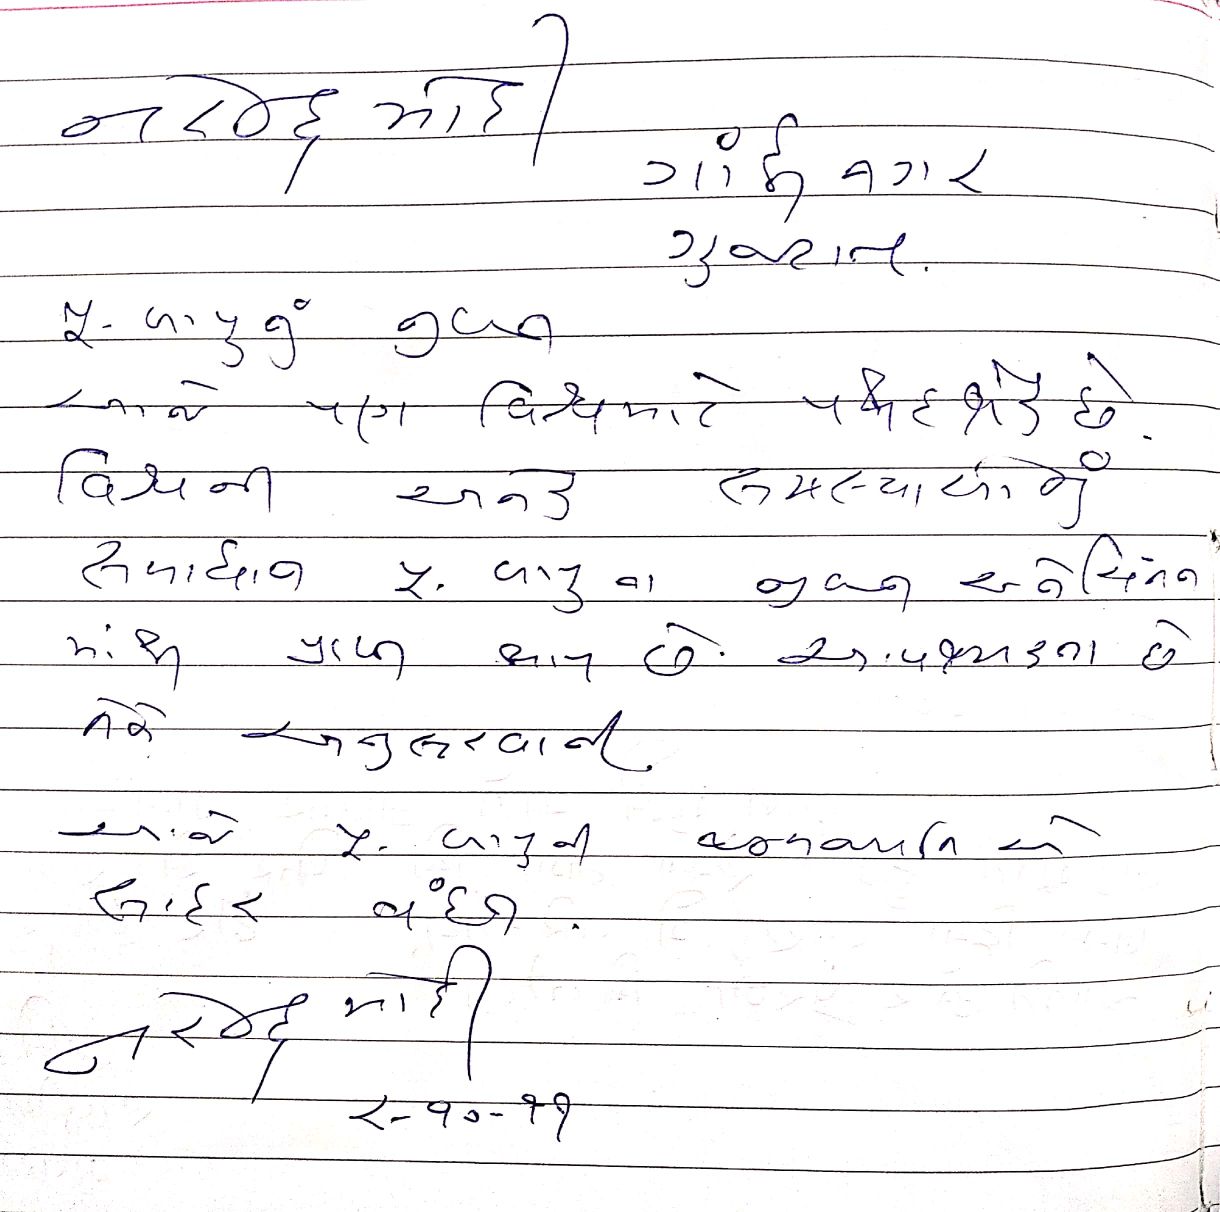 નરેન્દ્ર મોદી
ગાંધીનગર
ગુજરાત.
પૂ. બાપુનું જીવન
આજે પણ વિશ્વ માટે પથદર્શક છે.
વિશ્વની અનેક સમસ્યાઓનું
સમાધાન પૂ. બાપુના જીવન અને ચિંતન
માંથી પ્રાપ્ત થાય છે. આવશ્યકતા છે
તેને અનુસરવાની.
આજે પૂ. બાપુની જન્મજયંતિ એ
સાદર વંદન.
નરેન્દ્ર મોદી
૨-૧૦-૧૧